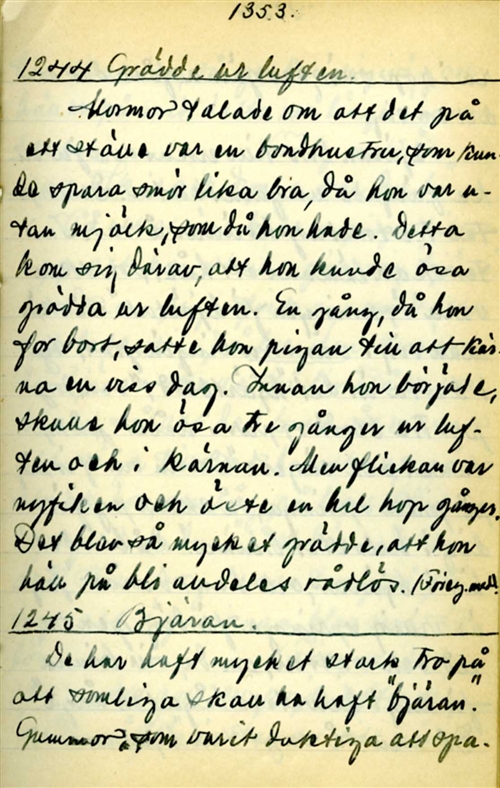 1353.
1244 Grädde ur luften.
Mormor talade om att det på
ett ställe var en bondhustru, som kun-
de spara smör lika bra, då hon var u-
tan mjölk, som då hon hade. Detta
kom sig därav, att hon kunde ösa
grädda ur luften. En gång, då hon
for bort, satte hon pigan till att kär-
na en viss dag. Innan hon började,
skulle hon ösa tre gånger ur luf-
ten och i kärnan. Men flickan var
nyfiken och öste en hel hop gånger.
Det blev så mycket grädde, att hon
höll på bli alldeles rådlös. (Föreg. medd.
1245 Bjäran.
De har haft mycket stark tro på
att somliga skall ha haft "bjäran."
Gummor, som varit duktiga att spa-